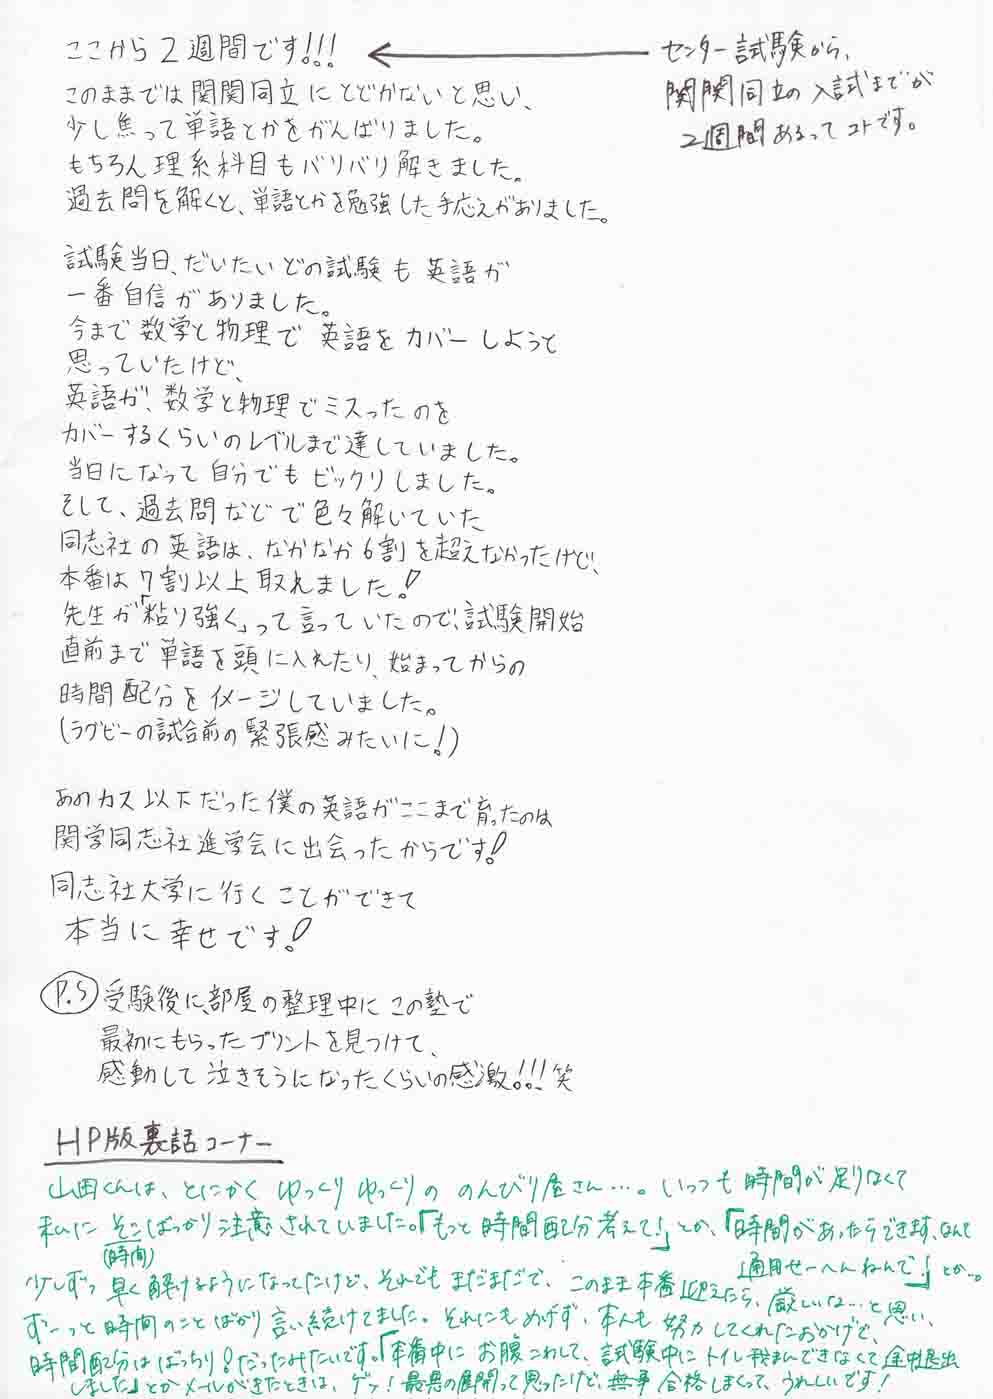 ここから2週間です!!!
センター試験から、
関関同立の入試までが
2週間あるってコトです。
このままでは関関同立にとどかないと思い、
少し焦って単語とかをがんばりました。
もちろん理系科目もバリバリ解きました。
過去問を解くと、単語とかを勉強した手応えがありました。
試験当日、だいたいどの試験も英語が
一番自信がありました。
今まで数学と物理で英語をカバーしようと
思っていたけど、
英語が、数学と物理でミスったのを
カバーするくらいのレベルまで達していました。
当日になって自分でもビックリしました。
そして、過去問などで色々解いていた
同志社の英語は、なかなか6割を超えなかったけど、
本番は7割以上取れました!
先生が「粘り強く」って言っていたので、試験開始
直前まで単語を頭に入れたり、始まってからの
時間配分をイメージしていました。
(ラグビーの試合前の緊張感みたいに!)
あのカス以下だった僕の英語がここまで育ったのは
関学同志社進学会に出会ったからです!
同志社大学に行くことができて
本当に幸せです!
P.S 受験後に、部屋の整理中にこの塾で
最初にもらったプリントを見つけて、
感動して泣きそうになったくらいの感激!!!笑
HP版裏話コーナー
山田くんは、とにかくゆっくりゆっくりののんびり屋さん…。いっつも時間が足りなくて
私にそこばっかり注意されていました。「もっと時間配分考えて!」とか、「時間があったらできます、なんて
(時間)
通用せーへんねんで!」とか…。
少しずつ早く解けるようになってたけど、それでもまだまだで、このまま本番迎えたら、厳しいな…と思い、
ずーっと時間のことばかり言い続けてました。それにもめげず、本人も努力してくれたおかげで、
時間配分はばっちり!だったみたいです。「本番中にお腹こわして、試験中にトイレ我まんできなくて途中退出
しました」とかメールがきたときは、ゲッ!最悪の展開って思ったけど、無事合格しまくって、うれしいです!